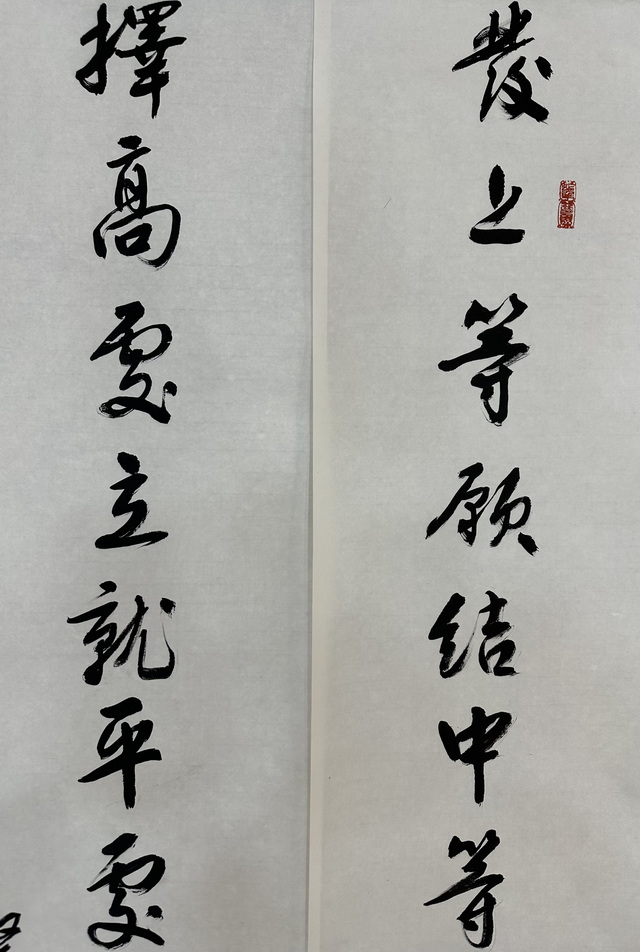 發上等願結中等
擇高處立就平處